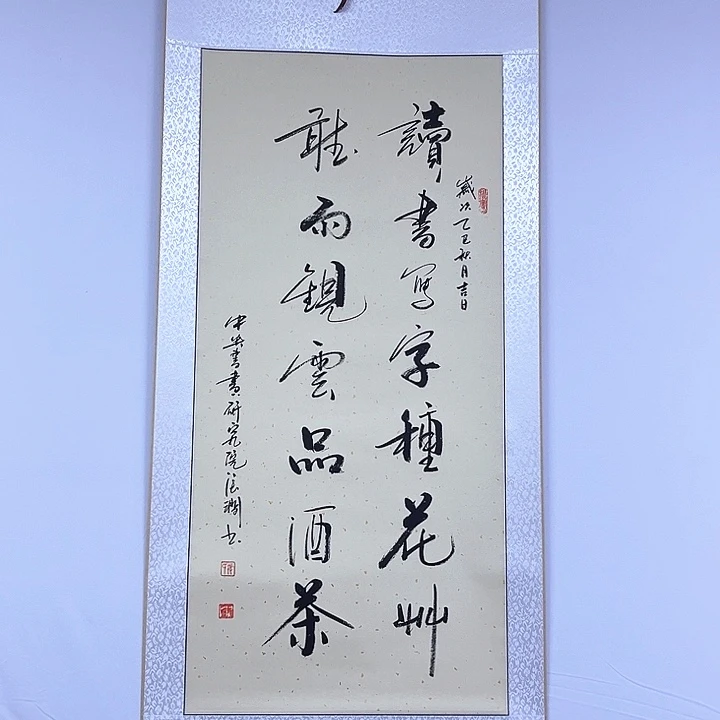 歲次乙巳秋月吉日
讀書写字種花艸
聽雨觀雲品酒茶
中央書畫研究院书